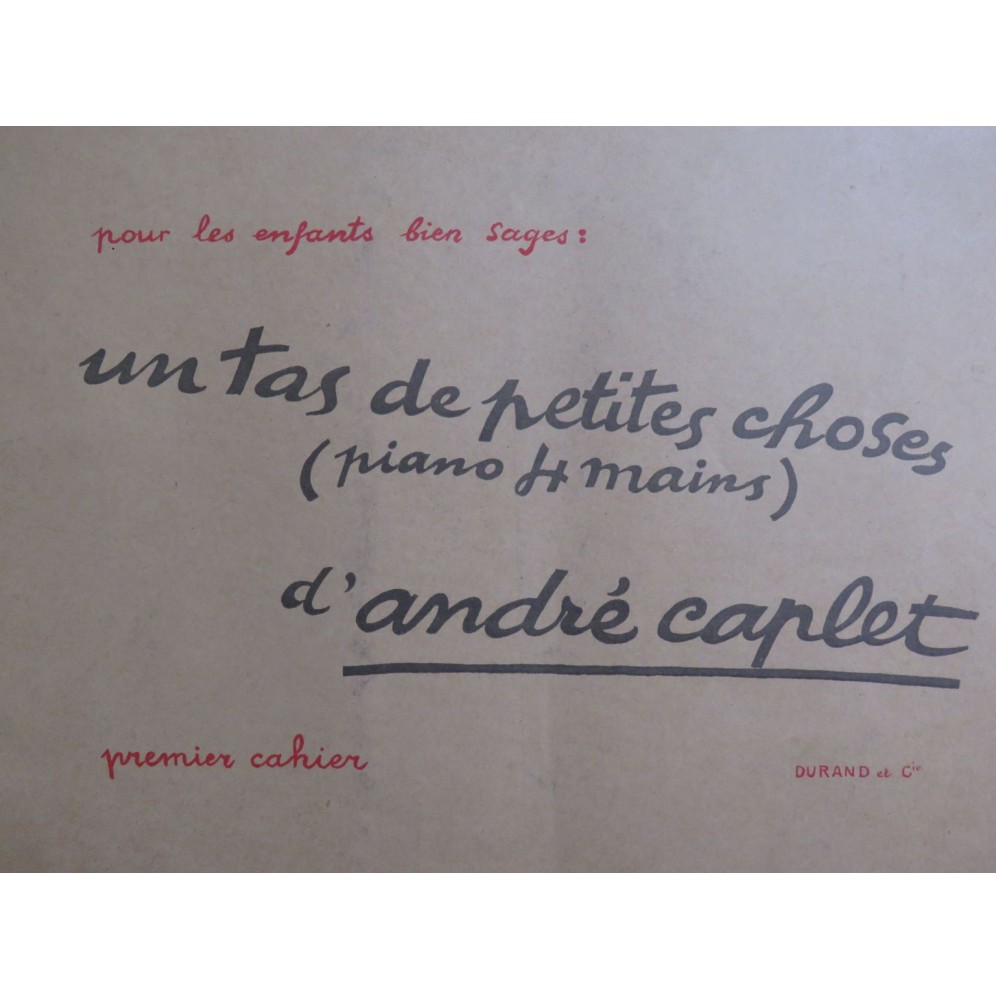 pour les enfants bien sages :
un tas de petites choses
(piano 4 mains)
d'andré caplet
premier cahier
DURAND et Cie